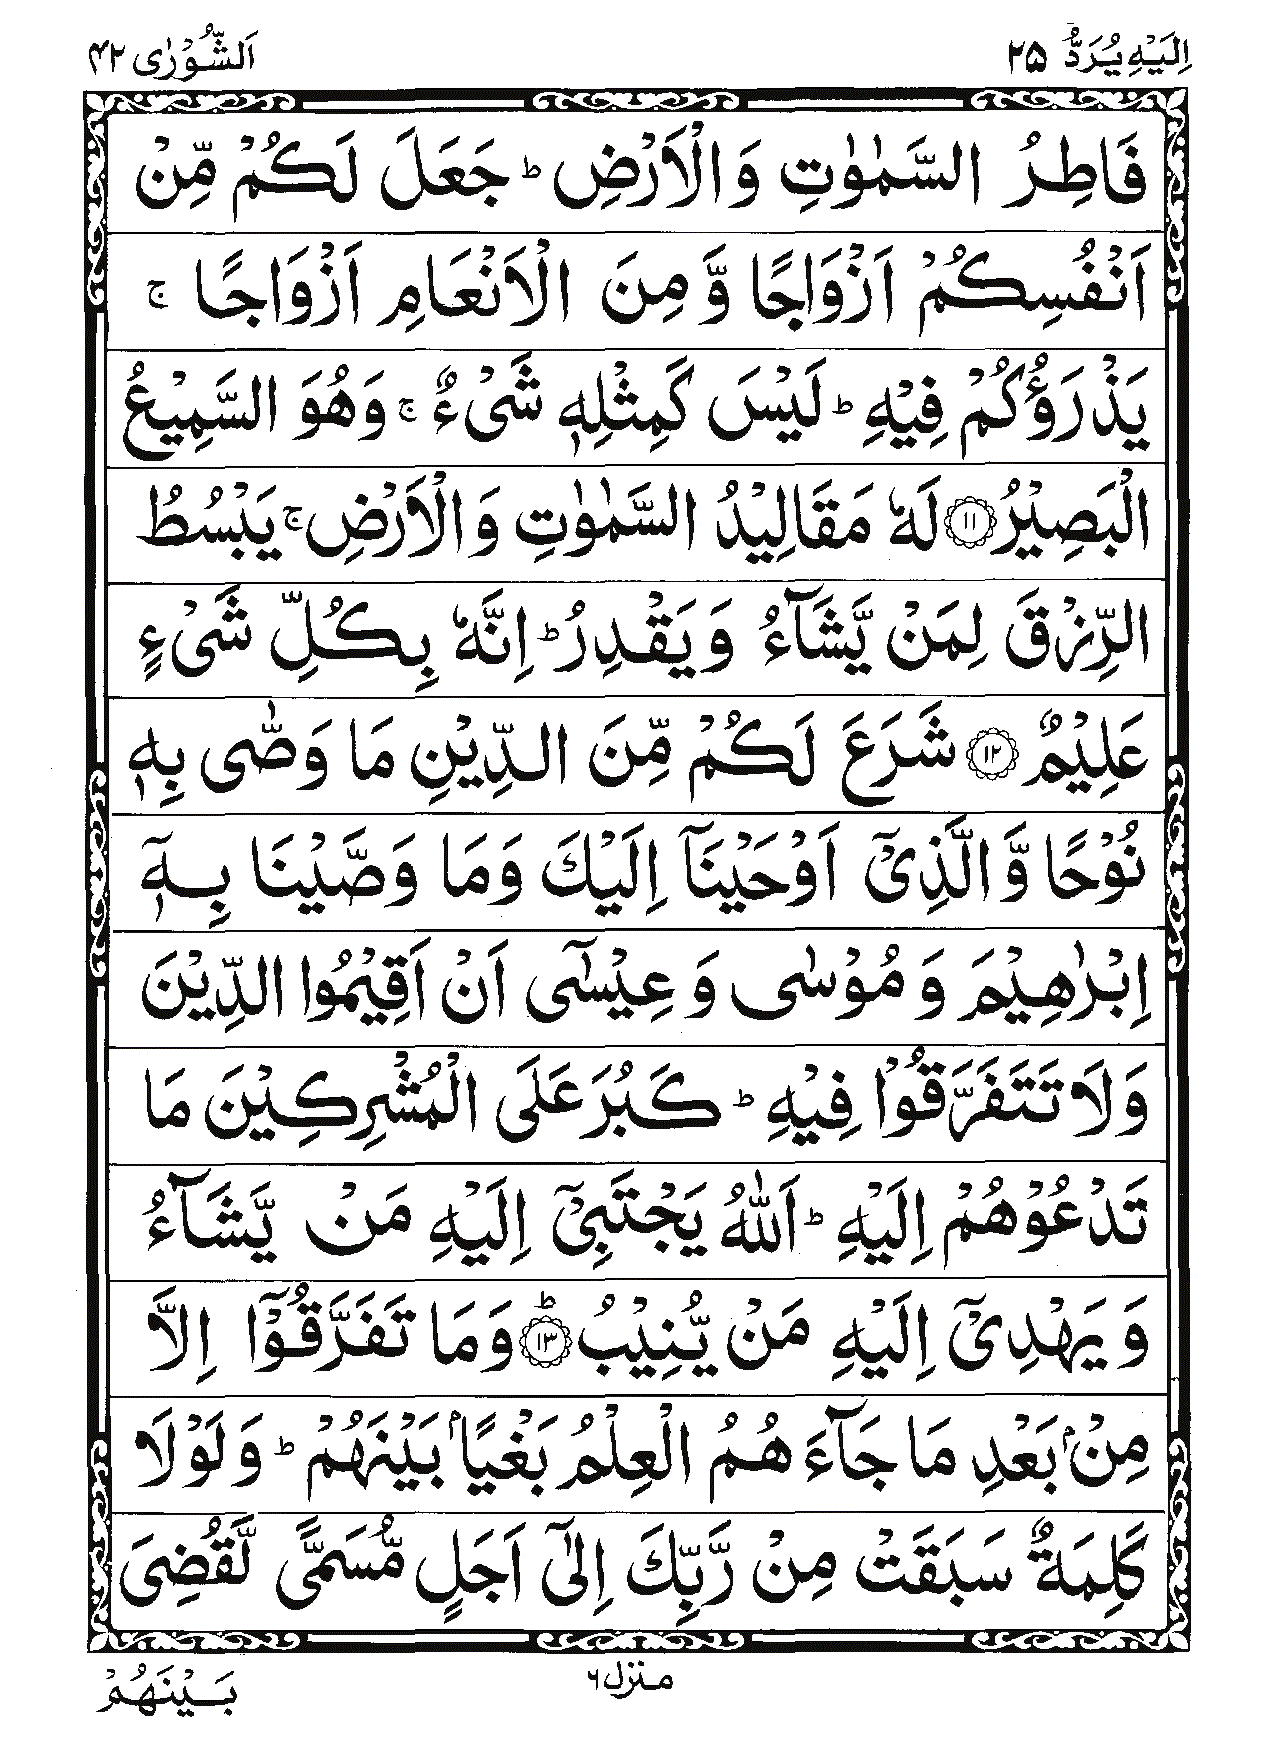 اِلَيْهِ يُرَدُّ ۲۵
اَلشُّوْرٰى ۴۲
فَاطِرُ السَّمٰوٰتِ وَالْاَرْضِ ؕ جَعَلَ لَكُمْ مِّنْ
اَنْفُسِكُمْ اَزْوَاجًا وَّ مِنَ الْاَنْعَامِ اَزْوَاجًا ۚ
يَذْرَؤُكُمْ فِيْهِ ؕ لَيْسَ كَمِثْلِهٖ شَىْءٌ ۚ وَهُوَ السَّمِيْعُ
الْبَصِيْرُ ﴿۱۱﴾ لَهٗ مَقَالِيْدُ السَّمٰوٰتِ وَالْاَرْضِ ۚ يَبْسُطُ
الرِّزْقَ لِمَنْ يَّشَآءُ وَيَقْدِرُ ؕ اِنَّهٗ بِكُلِّ شَىْءٍ
عَلِيْمٌ ﴿۱۲﴾ شَرَعَ لَكُمْ مِّنَ الدِّيْنِ مَا وَصّٰى بِهٖ
نُوْحًا وَّالَّذِىْۤ اَوْحَيْنَاۤ اِلَيْكَ وَمَا وَصَّيْنَا بِهٖۤ
اِبْرٰهِيْمَ وَ مُوْسٰى وَ عِيْسٰٓى اَنْ اَقِيْمُوا الدِّيْنَ
وَلَا تَتَفَرَّقُوْا فِيْهِ ؕ كَبُرَ عَلَى الْمُشْرِكِيْنَ مَا
تَدْعُوْهُمْ اِلَيْهِ ؕ اَللّٰهُ يَجْتَبِىْۤ اِلَيْهِ مَنْ يَّشَآءُ
وَ يَهْدِىْۤ اِلَيْهِ مَنْ يُّنِيْبُ ؕ﴿۱۳﴾ وَمَا تَفَرَّقُوْۤا اِلَّا
مِنْۢ بَعْدِ مَا جَآءَ هُمُ الْعِلْمُ بَغْيًاۢ بَيْنَهُمْ ؕ وَلَوْلَا
كَلِمَةٌ سَبَقَتْ مِنْ رَّبِّكَ اِلٰٓى اَجَلٍ مُّسَمًّى لَّقُضِىَ
منزل ۶
بَيْنَهُمْ